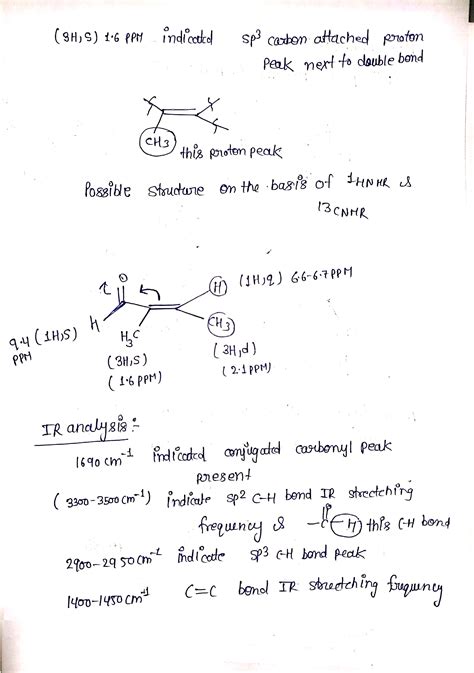 (3H,S) 1.6 PPM indicated sp³ carbon attached proton
Peak next to double bond
CH3
this proton peak
Possible structure on the basis of 1HNMR &
13CNMR
O
H
H
(1H,q) 6.6-6.7 PPM
9.4 (1H,S)
PPM
H3C
CH3
(3H,S)
(1.6 PPM)
(3H,d)
(2.1 PPM)
IR analysis :-
1690 cm⁻¹ indicated conjugated carbonyl peak
present
(3300-3500 cm⁻¹) indicate sp² C-H bond IR stretching
frequency & -C-H this C-H bond
O
2900-2950 cm⁻¹ indicate sp³ C-H bond peak
1400-1450 cm⁻¹ C=C bond IR stretching frequency